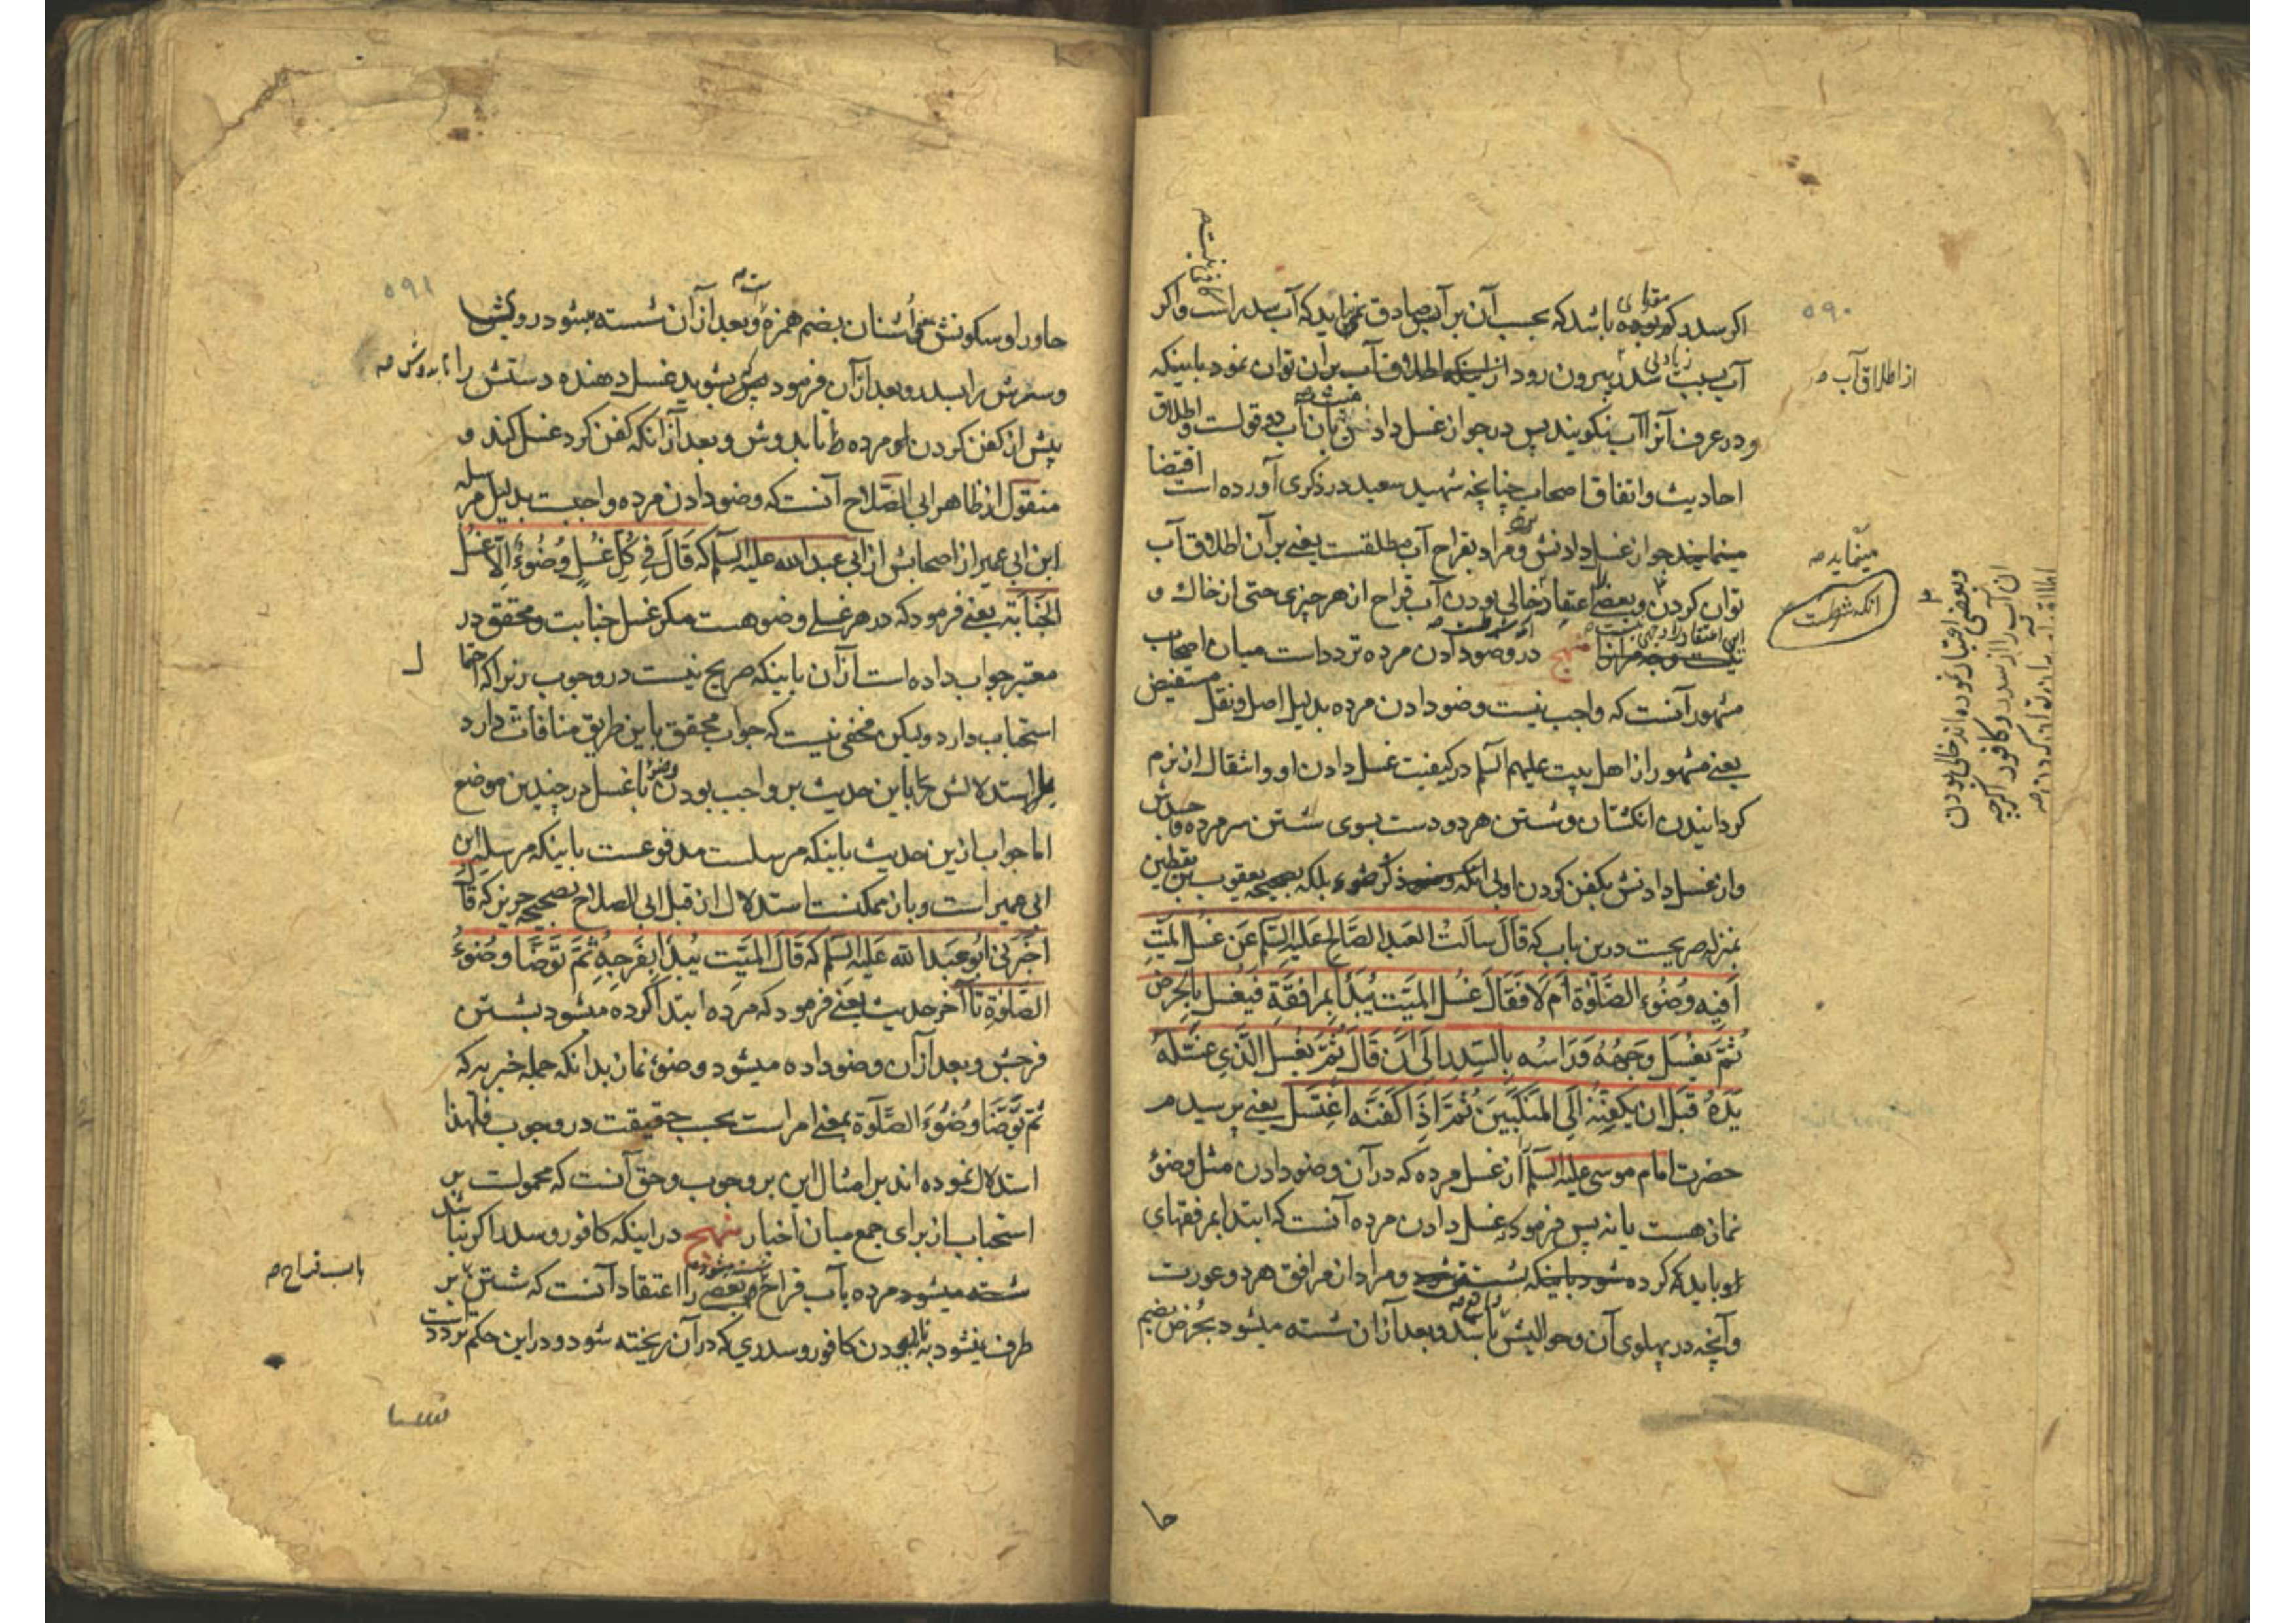 ۵۹۰
اکر سدر که بوده باشد که بحسب آن بر آب صادق نمی آید که آب سدر است واکر
آب بسبب زیادتی سدر بیرون رود از اینکه اطلاق آب بر آن توان نمود باینکه
از اطلاق آب
ودر عرف آنرا آب نکویند پس در جواز غسل دادن بآن آب دو قولست واطلاق
احادیث واتفاق اصحاب چنانچه شهید سعید در ذکری آورده است اقتضا
مینماید جواز غسل دادنش ومراد بقراح آب مطلقست یعنی بر آن اطلاق آب
مینماید
توان کردن وبعضی اعتقاد خالی بودن آب قراح از هر چیزی حتی از خاک و
انکه شرطست
وبعضی اعتبار نموده اند خالی بودن
ان آب را از سدر و کافور اکرچه
منهج در وضو دادن مرده تردد است میان اصحاب
مشهور آنست که واجب نیست وضو دادن مرده بدلیل اصل ونقل مستفیض
یعنی مشهور از اهل بیت علیهم السلم در کیفیت غسل دادن او واشتغال از نرم
کردانیدن انکشتان وشستن هر دو دست بسوی شستن سر مرده وجسدش
واز غسل دادنش بکفن کردن اولی بلکه صحیحه یعقوب بن یقطین
بمنزله صریحست درین باب که قَالَ سَاَلتُ العَبدَ الصَّالِحَ عَلَیهِ السَّلَم عَن غُسلِ المَیِّتِ
اَفِیهِ وُضُوءِ الصَّلوٰةِ اَم لَا فَقَالَ غُسلُ المَیِّتِ یُبدَأُ بِمَرَافِقِهِ فَیُغسَلُ بِالحُرُضِ
ثُمَّ یَغسِلُ وَجهَهُ وَرَاسَهُ بِالسِّدرِ اِلَی اَن قَالَ ثُمَّ یَغسِلُ الَّذِی غَسَّلَهُ
یَدَهُ قَبلَ ان یُکَفِّنَهُ اِلَی المَنکِبَینِ ثُمَّ اِذَا کَفَّنَهُ اغتَسَلَ یعنی پرسیدم
حضرت امام موسی علیه السلم از غسل مرده که در آن وضو دادن مثل وضوء
نماز هست یا نه پس فرمود که غسل دادن مرده آنست که ابتدا بمرفقهای
او باید که کرده شود ومراد از مرافق هر دو عورت
وآنچه در پهلوی آن وحوالیش باشد وبعد از آن شسته میشود بحُرض بضم
حا
۵۹۱
حاو را وسکونش اُشنان بضم همزه وبعد از آن شسته میشود رویش
وسرش را بسدر وبعد از آن فرمود بشوید غسل دهنده دستش را تا بدوش
پیش از کفن کردن مرده تا بدوش وبعد از آنکه کفن کرد غسل کند و
منقول از ظاهر ابی الصَّلاح آنست که وضو دادن مرده واجبست بدلیل مرسله
ابن ابی عمیر از اصحابش از ابی عبد الله علیه السلم که قَالَ فِی کُلِّ غُسلٍ وُضُوءٌ اِلَّا غُسل
الجَنَابَةِ یعنی فرمود که در هر غسلی وضو هست مکر غسل جنابت ومحقق در
معتبر جواب داده است از آن باینکه صریح نیست در وجوب زیرا که احتما
ل
استحباب دارد ولیکن مخفی نیست که جواب محقق باین طریق منافات دارد
با استدلالش باین حدیث بر واجب بودن وضو با غسل در چندین موضع
اما جواب ازین حدیث باینکه مرسلست مدفوعست باینکه مرسلۀ ابن
ابی عمیر است وبآن ممکنست استدلال از قبل ابی الصلاح بصحیحه حریز که قَالَ
اَخبَرَنِی ابُو عَبدِ الله عَلَیهِ السَّلم که قَالَ المَیِّت یُبدَأ بِفَرجِهِ ثُمَّ تُوَضَّأ وُضُوءَ
الصَّلوٰةِ تا آخر حدیث یعنی فرمود که مرده ابتدا کرده میشود بشستن
فرجش وبعد از آن وضو داده میشود وضوء نماز بدانکه جمله خبریه که
ثُمَّ تُوَضَّأ وُضُوءَ الصَّلَوةِ بمعنی امر است بحسب حقیقت در وجوب فلهذا
استدلال نموده اند بر امثال این بر وجوب وحق آنست که محمولست بر
استحباب از برای جمع میان اخبار منهج در اینکه کافور وسدر اکر نباشد
شسته میشود مرده بآب قراح وبعضی را اعتقاد آنست که شستن بر
باب قراح
طرف نیشود به نابودن کافور وسدری که در آن ریخته شود ودر این حکم تردد است